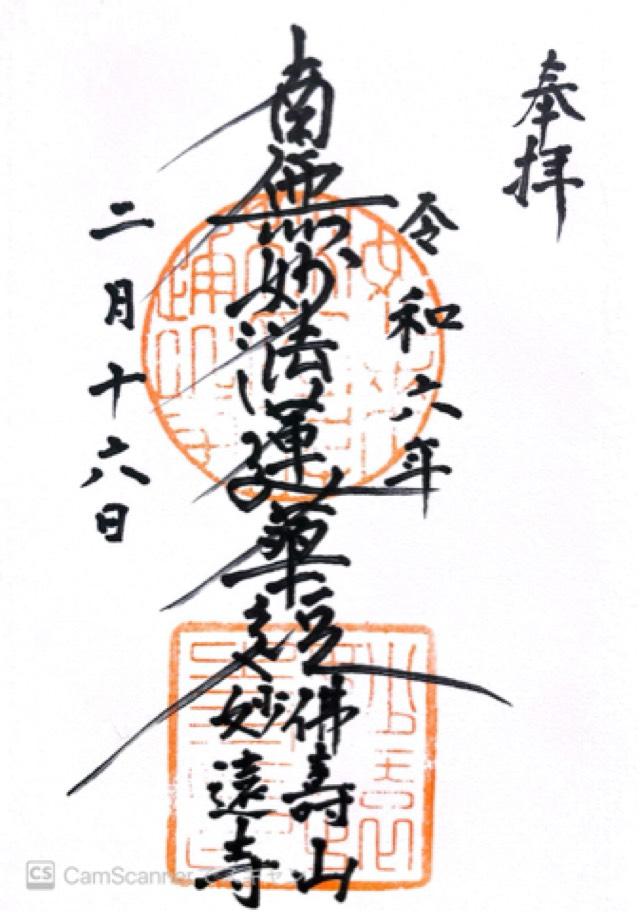 奉拝
令和六年
南無妙法蓮華経
佛壽山
妙遠寺
二月十六日
CS CamScanner